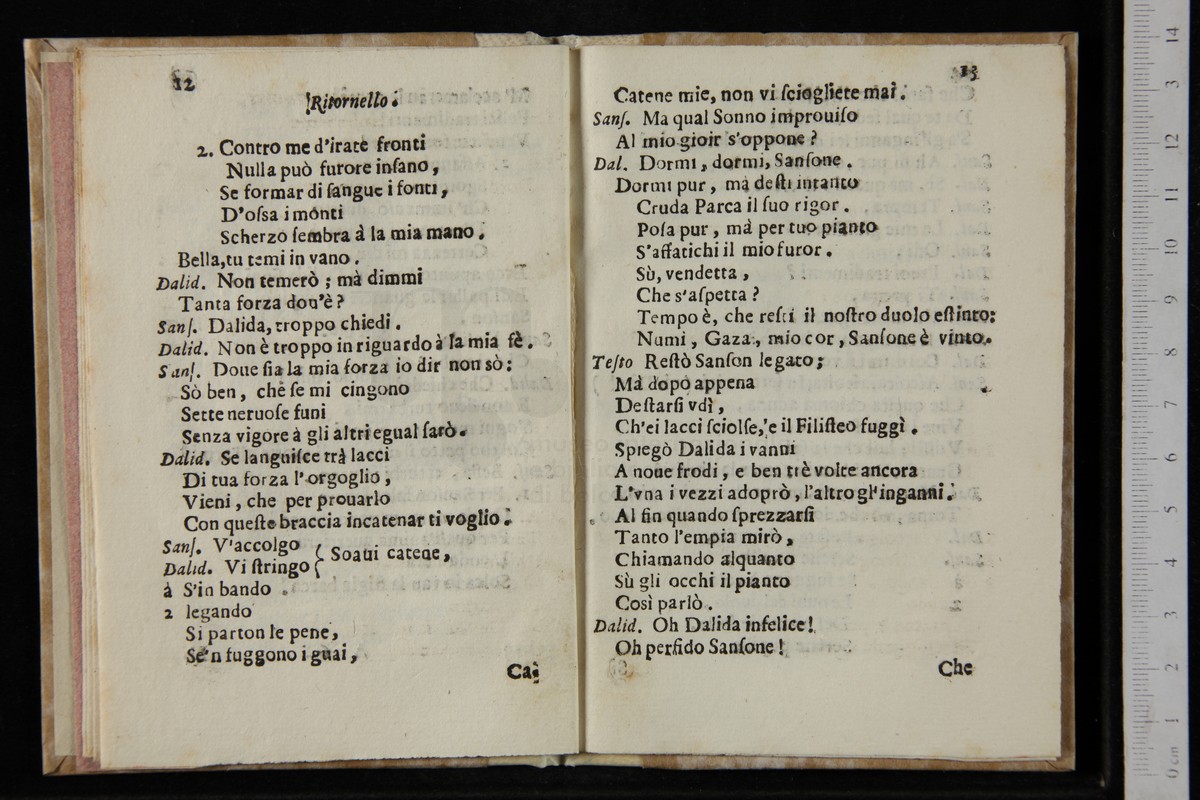 12
Ritornello.
2. Contro me d'irate fronti
Nulla può furore insano,
Se formar di sangue i fonti,
D'ossa i monti
Scherzo sembra à la mia mano.
Bella, tu temi in vano.
Dalid. Non temerò; mà dimmi
Tanta forza dou'è?
Sans. Dalida, troppo chiedi.
Dalid. Non è troppo in riguardo à la mia fè.
Sans. Doue sia la mia forza io dir non sò:
Sò ben, che se mi cingono
Sette neruose funi
Senza vigore à gli altri egual sarò.
Dalid. Se languisce trà lacci
Di tua forza l'orgoglio,
Vieni, che per prouarlo
Con queste braccia incatenar ti voglio.
Sans. V'accolgo
Dalid. Vi stringo { Soaui catene,
à S'in bando
2 legando
Si parton le pene,
Se'n fuggono i guai,
Ca-
13
Catene mie, non vi sciogliete mai.
Sans. Ma qual Sonno improuiso
Al mio gioir s'oppone?
Dal. Dormi, dormi, Sansone.
Dormi pur, mà desti intanto
Cruda Parca il suo rigor.
Posa pur, mà per tuo pianto
S'affatichi il mio furor.
Sù, vendetta,
Che s'aspetta?
Tempo è, che resti il nostro duolo estinto:
Numi, Gaza, mio cor, Sansone è vinto.
Testo Restò Sanson legato;
Mà dopò appena
Destarsi vdì,
Ch'ei lacci sciolse, e il Filisteo fuggì.
Spiegò Dalida i vanni
A noue frodi, e ben trè volte ancora
L'vna i vezzi adoprò, l'altro gl'inganni.
Al fin quando sprezzarsi
Tanto l'empia mirò,
Chiamando alquanto
Sù gli occhi il pianto
Così parlò.
Dalid. Oh Dalida infelice!
Oh perfido Sansone!
Che